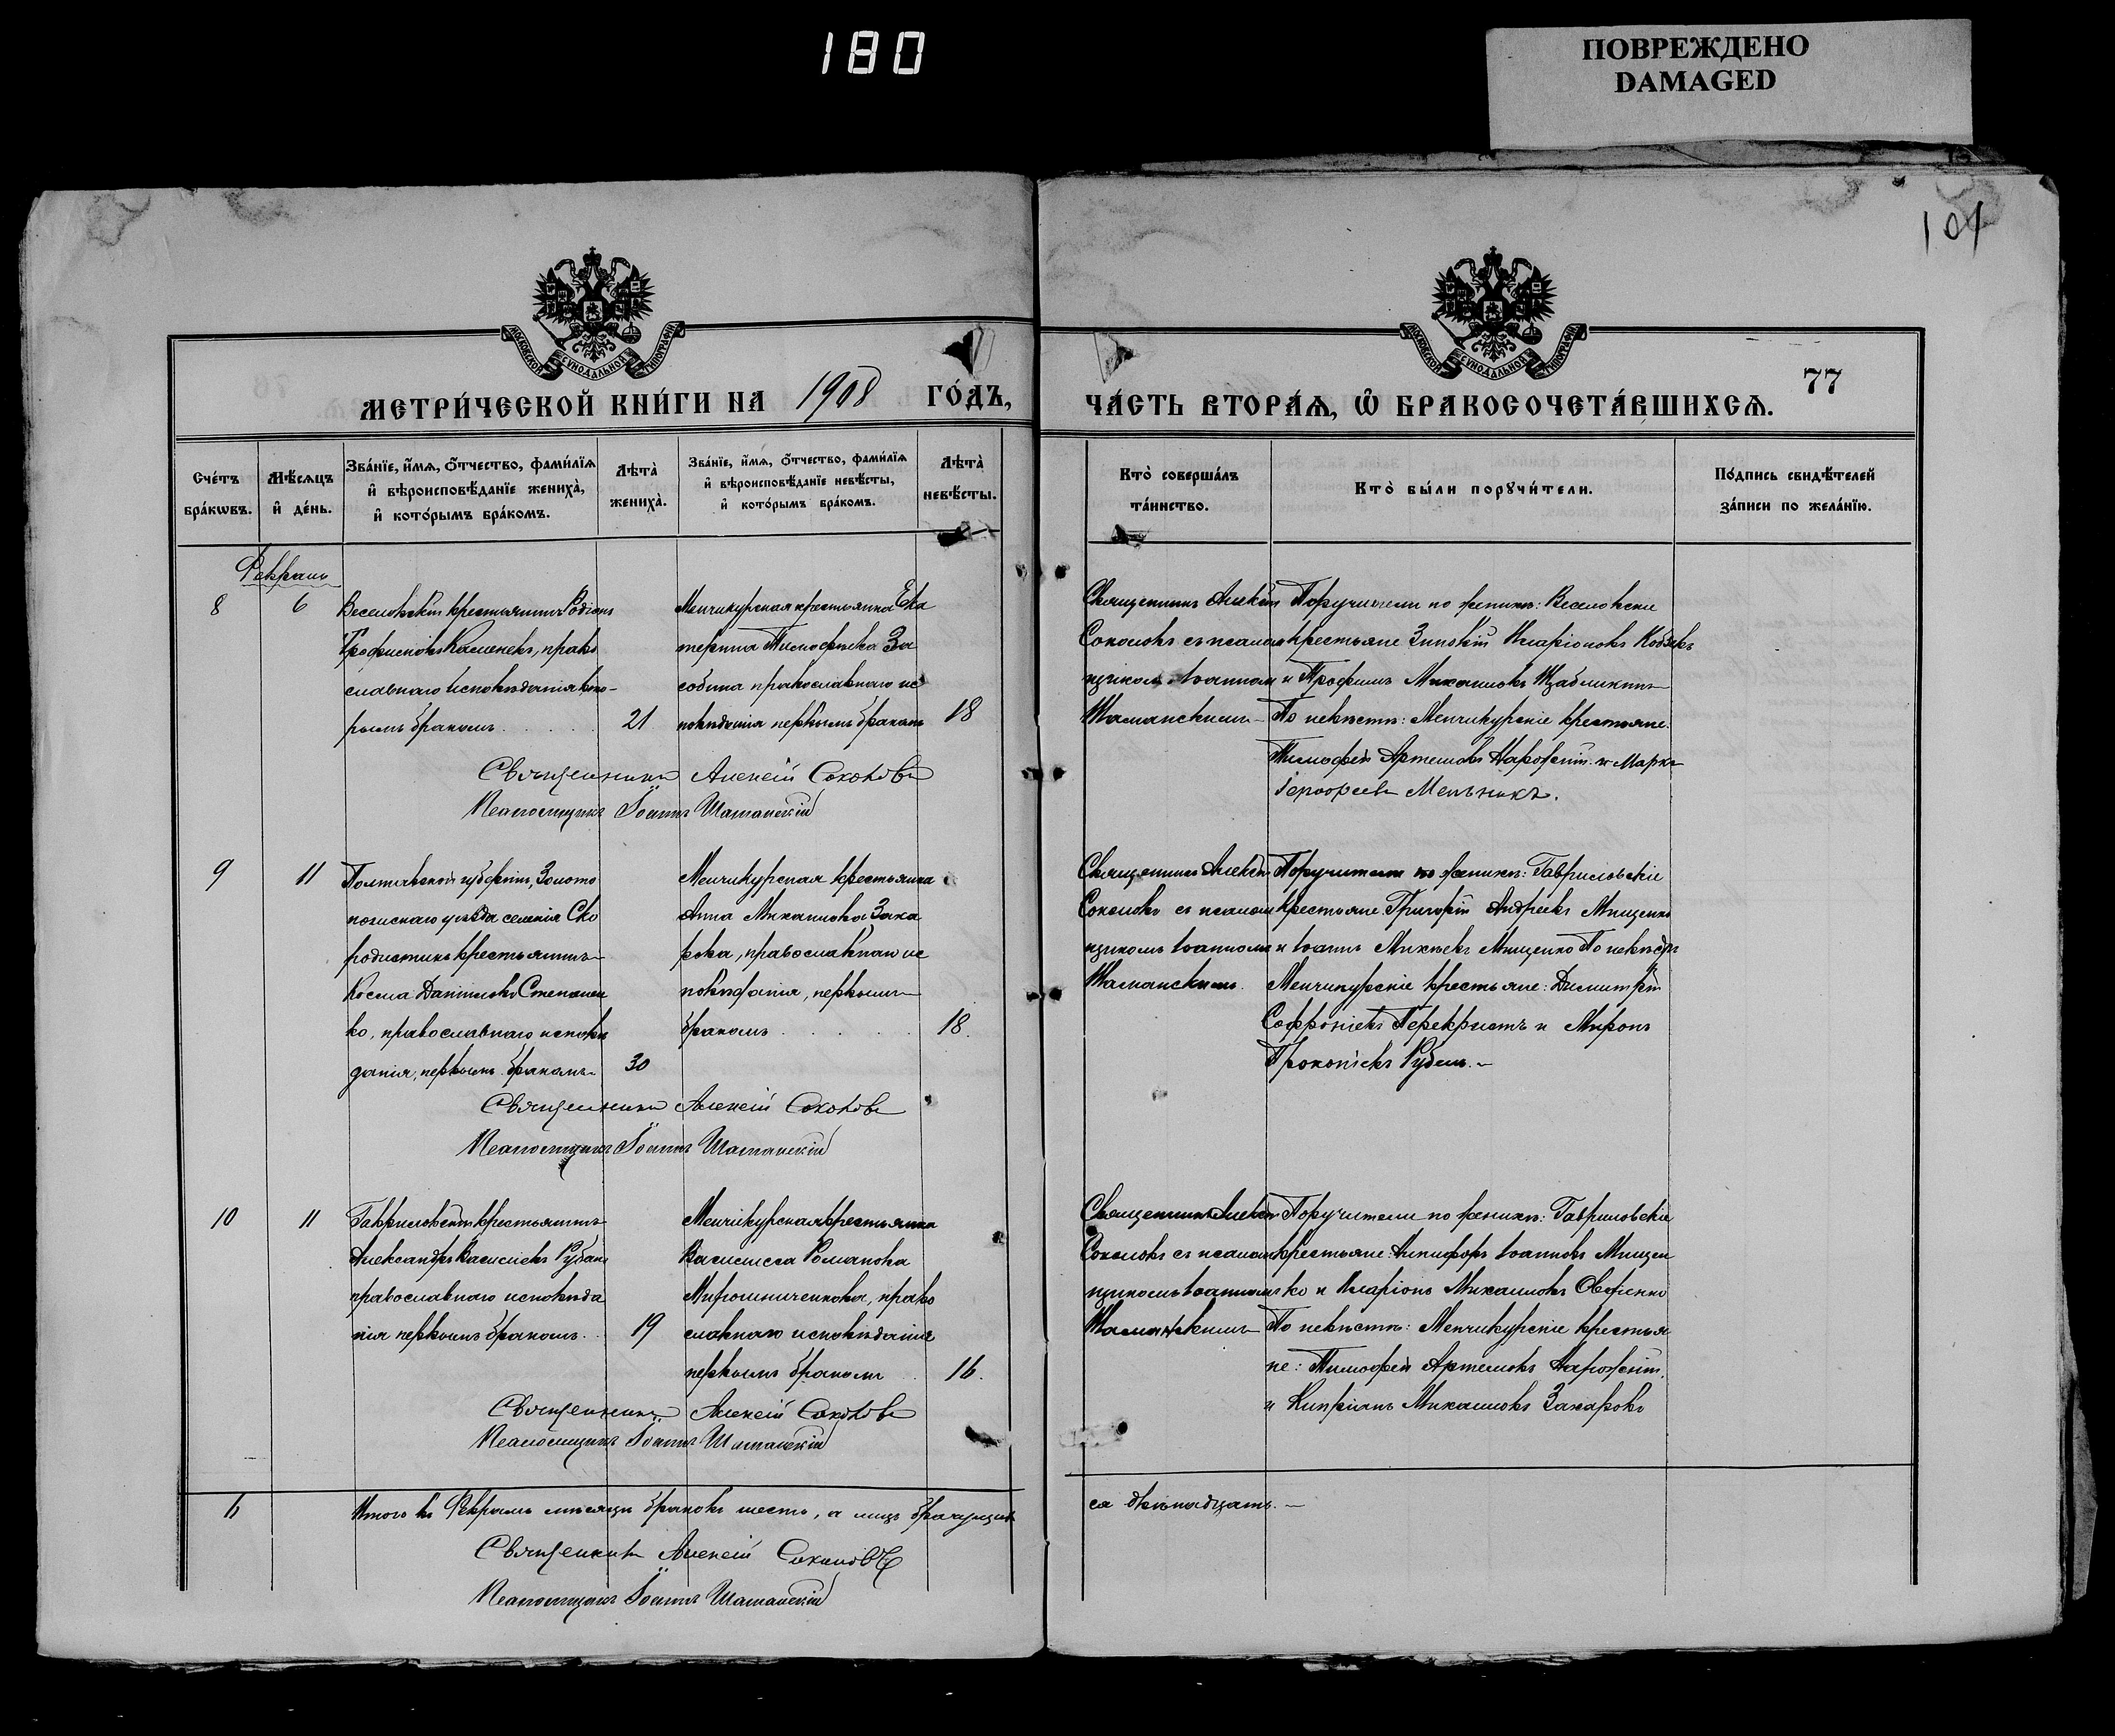 180
ПОВРЕЖДЕНО
DAMAGED
101
МОСКОВСКОЙ СѴНОДАЛЬНОЙ ТИПОГРАФІИ
МОСКОВСКОЙ СѴНОДАЛЬНОЙ ТИПОГРАФІИ
77
МЕТРИ́ЧЕСКОЙ КНИ́ГИ НА 1908 ГО́ДЪ,
ЧА́СТЬ ВТОРА́Ѧ, Ѽ БРАКОСОЧЕТА́ВШИХСѦ.
Сче́тъ бра́кѡвъ.
Мѣ́сѧцъ и҆ де́нь.
Зва́нїе, и҆́мѧ, ѻ҆́тчество, фами́лїѧ и҆ вѣроисповѣ́данїе жениха̀, и҆ кото́рымъ бра́комъ.
Лѣта̀ жениха̀.
Зва́нїе, и҆́мѧ, ѻ҆́тчество, фами́лїѧ и҆ вѣроисповѣ́данїе невѣ́сты, и҆ кото́рымъ бра́комъ.
Лѣта̀ невѣ́сты.
Кто̀ соверша́лъ та́инство.
Кто̀ бы́ли порꙋчи́тели.
По́дпись свидѣ́телей за́писи по жела́нїю.
Февраль
8
6
Веселовскій крестьянинъ Родіонъ
Трофимовъ Каменевъ, право
славнаго исповѣданія вто-
рымъ бракомъ
21
Менчикурская крестьянка Ека
терина Тимофѣева За
собина православнаго ис
повѣданія первымъ бракомъ
18
Священникъ Алексій
Соколовъ съ псалом
щикомъ Іоанномъ
Шаманскимъ
Поручители по женихѣ: Веселовскіе
крестьяне Зиновій Иларіоновъ Кобзевъ
и Трофимъ Михаиловъ Щабликинъ
По невѣстѣ: Менчикурскіе крестьяне
Тимофей Артемовъ Нарожній и Марко
Мельникъ.
Священникъ Алексій Соколовъ
Псаломщикъ Іоаннъ Шаманскій
9
11
Полтавской губерніи, Золото
ношскаго уѣзда селенія Ско
родистика крестьянинъ
Косма Даніиловъ Степанен
ко, православнаго исповѣ
данія, первымъ бракомъ
30
Менчикурская крестьянка
Анна Михаилова Заха
рова, православнаго ис
повѣданія, первымъ
бракомъ
18.
Священникъ Алексій
Соколовъ съ псалом
щикомъ Іоанномъ
Шаманскимъ.
Поручители по женихѣ: Гавриловскіе
крестьяне Григорій Андреевъ Мищенко
и Іоаннъ Михѣевъ Мищенко По невѣстѣ
Менчикурскіе крестьяне: Димитрій
Софроніевъ Перекристъ и Миронъ
Прокопіевъ Рубель.
Священникъ Алексій Соколовъ
Псаломщикъ Іоаннъ Шаманскій
10
11
Гавриловскій крестьянинъ
Александръ Василіевъ Рубанъ
православнаго исповѣда
нія первымъ бракомъ
19
Менчикурская крестьянка
Василисса Романова
Мирошниченкова, право
славнаго исповѣданія
первымъ бракомъ
16.
Священникъ Алексій
Соколовъ съ псалом
щикомъ Іоанномъ
Шаманскимъ
Поручители по женихѣ: Гавриловскіе
крестьяне: Никифоръ Іоанновъ Мищен
ко и Иларіонъ Михаиловъ Овдіенко
По невѣстѣ: Менчикурскіе крестья
не: Тимофей Артемовъ Нарожній
и Кипріанъ Михаиловъ Захаровъ
Священникъ Алексій Соколовъ
Псаломщикъ Іоаннъ Шаманскій
6
Итого въ Февралѣ мѣсяцѣ браковъ шесть, а лицъ брачущих
ся двѣнадцать.
Священникъ Алексій Соколовъ
Псаломщикъ Іоаннъ Шаманскій